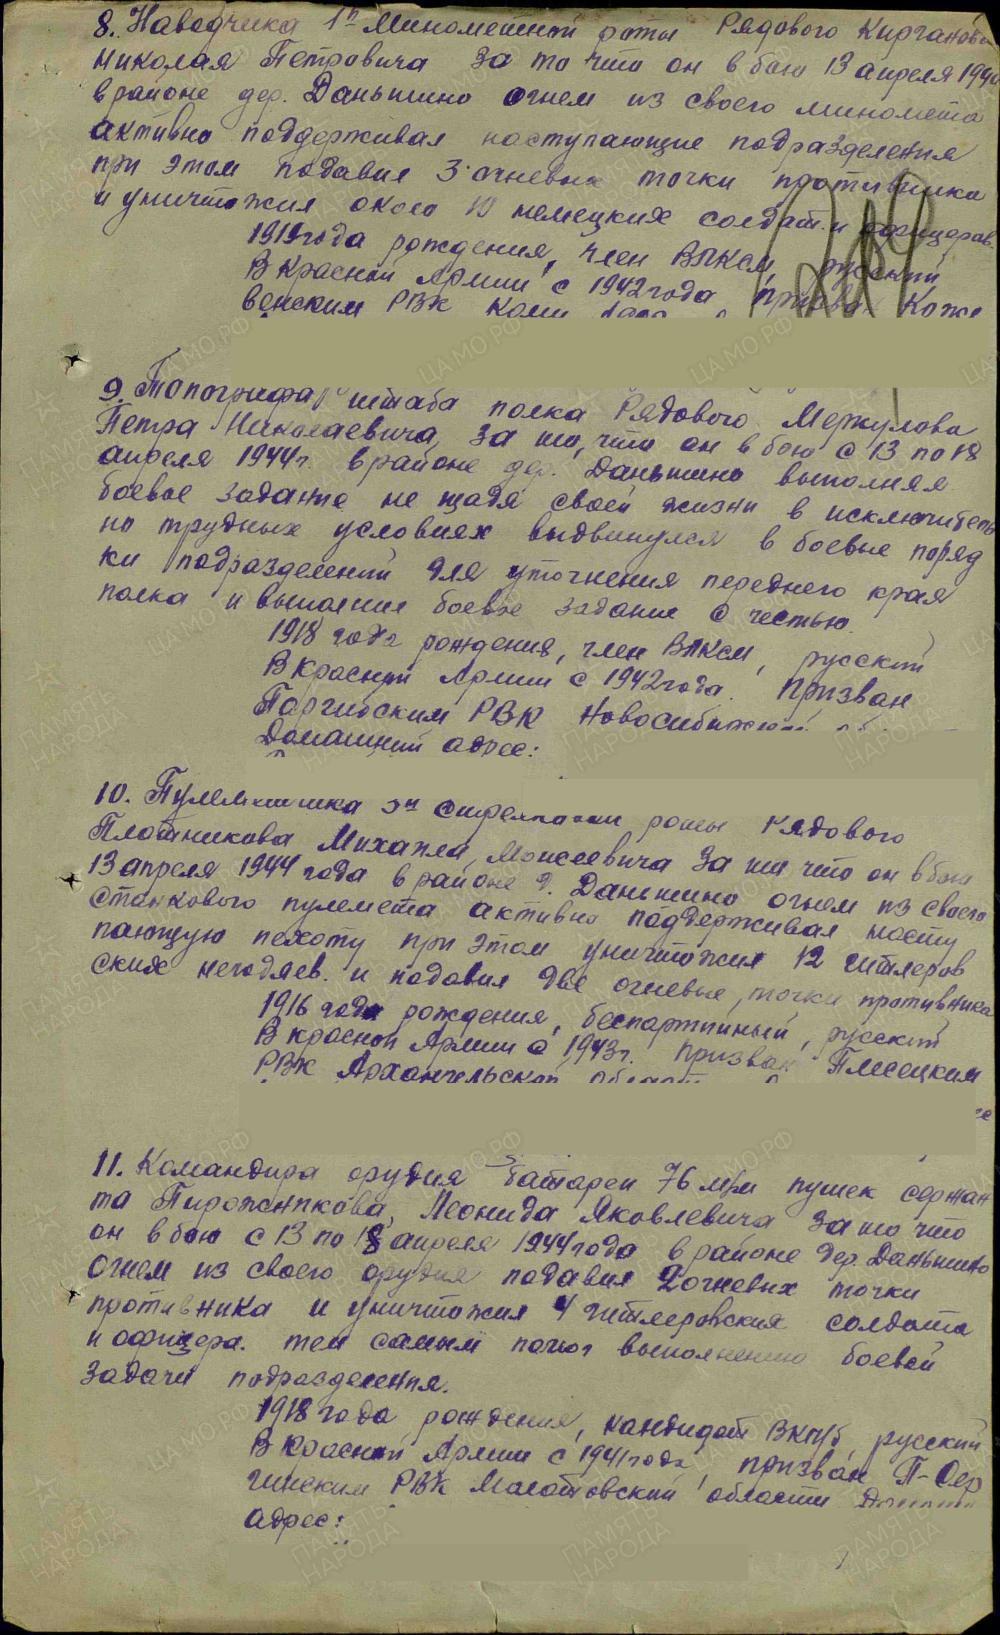 8. Наводчика 1й Минометной роты Рядового Кирганова
Николая Петровича За то что он в бою 13 апреля 194
в районе дер. Даньшино огнем из своего миномета
активно поддерживал наступающие подразделения
при этом подавил 3 огневых точки противника
и уничтожил около 10 немецких солдат и офицеров.
1919 года рождения, член ВЛКСМ, русский
В Красной Армии с 1942 года призван Коже
венским РВК Коми
9. Топографа штаба полка Рядового Меркулова
Петра Николаевича, За то, что он в бою с 13 по 18
апреля 1944 г. в районе дер. Даньшино выполняя
боевое задание не щадя своей жизни в исключитель
но трудных условиях выдвинулся в боевые поряд
ки подразделений для уточнения переднего края
полка и выполнил боевое задание с честью.
1918 года рождения, член ВЛКСМ, русский
В Красной Армии с 1942 года. Призван
РВК Новосибирской
Домашний адрес:
10. Пулеметчика стрелковой роты Рядового
Плотникова Михаила Моисеевича За то что он в бою
13 апреля 1944 года в районе д. Даньшино огнем из своего
станкового пулемета активно поддерживал насту
пающую пехоту при этом уничтожил 12 гитлеров
ских негодяев. и подавил две огневые точки противника
1916 года рождения, беспартийный, русский
В Красной Армии с 1943 г. призван Плесецким
РВК Архангельской области
11. Командира орудия батареи 76 м/м пушек сержан
та Пирожникова, Леонида Яковлевича За то что
он в бою с 13 по 18 апреля 1944 года в районе дер. Даньшино
Огнем из своего орудия подавил 2 огневых точки
противника и уничтожил 4 гитлеровских солдата
и офицера. тем самым помог выполнению боевой
задачи подразделения.
1918 года рождения, кандидат ВКП/б, русский
В Красной Армии с 1941 года, призван П-Сер
гинским РВК Молотовской области
адрес:
ПАМЯТЬ НАРОДА
ЦАМО.РФ